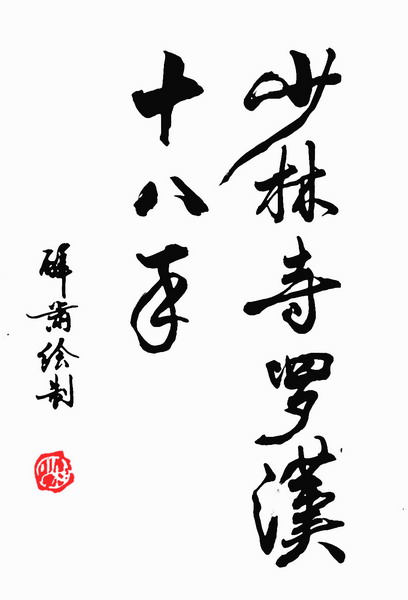 少林寺罗漢
十八手
绘制